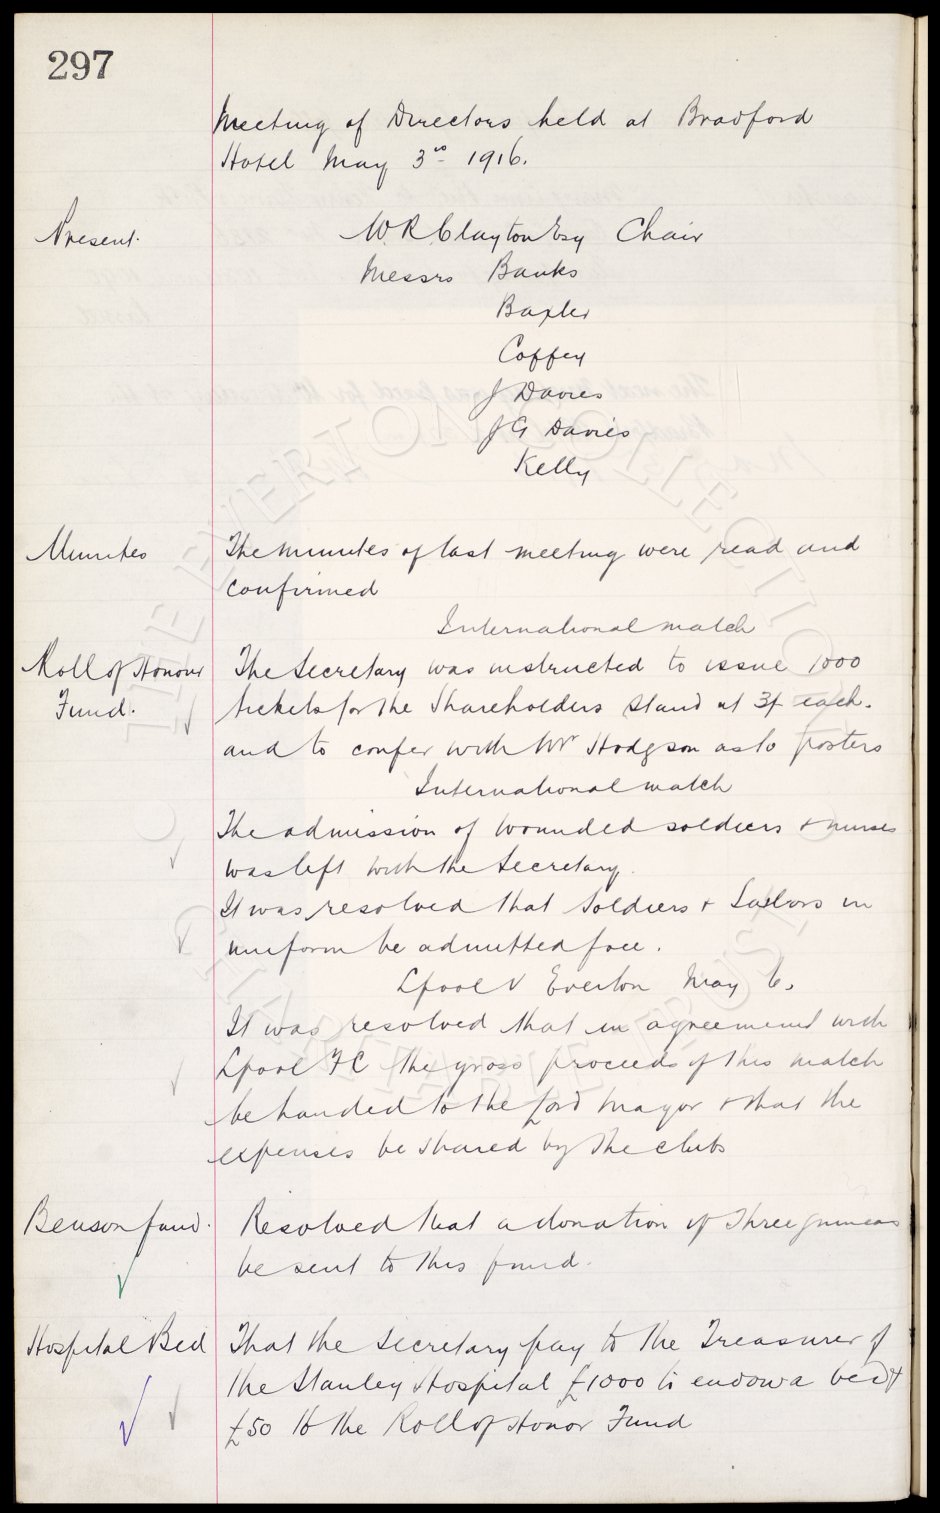 297
Meeting of Directors held at Bradford
Hotel May 3rd 1916.
Present.
W R Clayton Esq Chair
Messrs Banks
Baxter
Coffey
J Davies
J G Davies
Kelly
Minutes
The minutes of last meeting were read and
confirmed
International match
Roll of Honour
Fund.
The Secretary was instructed to issue 1000
tickets for the Shareholders Stand at 3/ each.
and to confer with Mr Hodgson as to posters
International match
The admission of wounded soldiers + nurses
was left with the Secretary.
It was resolved that Soldiers + Sailors in
uniform be admitted free.
Lpool V Everton May 6.
It was resolved that in agreement with
Lpool FC the gross proceeds of this match
be handed to the Lord Mayor + that the
expenses be shared by the clubs
Benson fund.
Resolved that a donation of Three guineas
be sent to this fund.
Hospital Bed
That the Secretary pay to the Treasurer of
the Stanley Hospital £1000 to endow a bed +
£50 to the Roll of Honor Fund
THE EVERTON COLLECTION
CHARITABLE TRUST